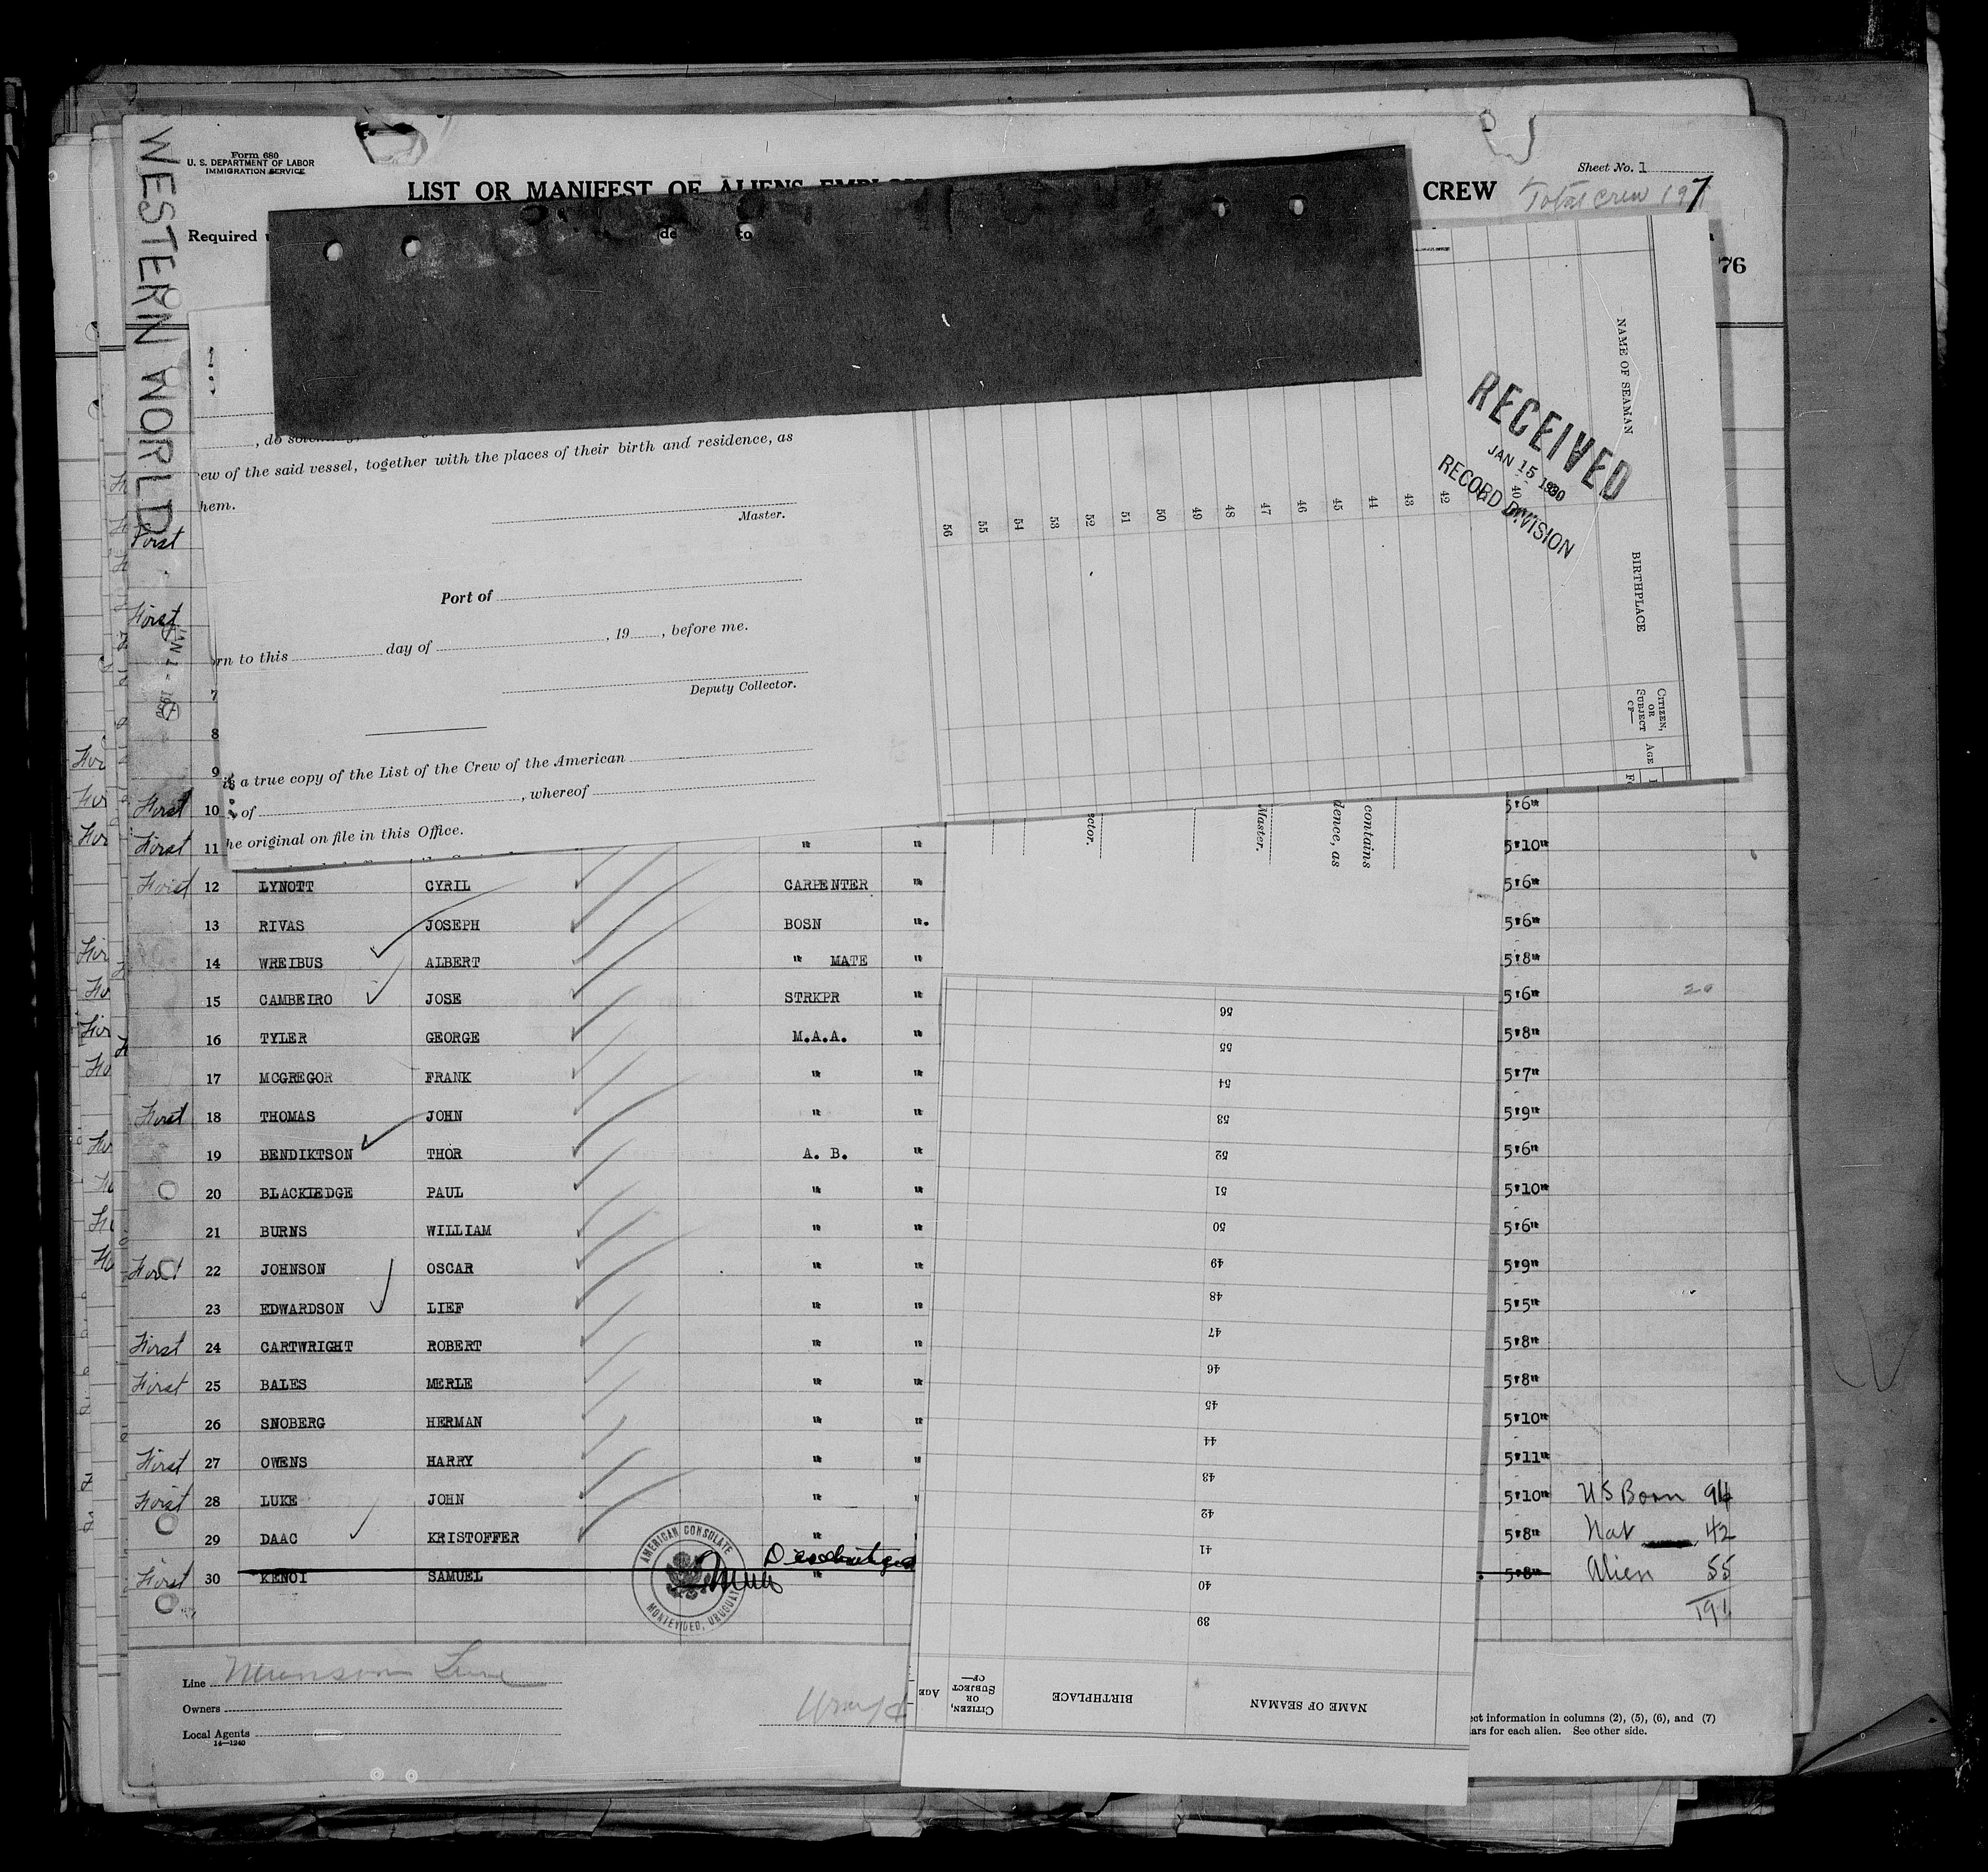 WESTERN WORLD
Form 680
U. S. DEPARTMENT OF LABOR
IMMIGRATION SERVICE
Sheet No. 1
LIST OR MANIFEST OF ALIENS
CREW
Total crew 197
Required
76
, do
ew of the said vessel, together with the places of their birth and residence, as
hem.
Master.
Port of
rn to this day of , 19 , before me.
Deputy Collector.
is a true copy of the List of the Crew of the American
of , whereof
he original on file in this Office.
NAME OF SEAMAN
BIRTHPLACE
CITIZEN, OR SUBJECT OF—
AGE
RECEIVED
JAN 15 1930
RECORD DIVISION
56 55 54 53 52 51 50 49 48 47 46 45 44 43 42 40
First
First
7
8
9
First 10 5'6"
First 11 " " 5'10"
First 12 LYNOTT CYRIL CARPENTER " 5'6"
13 RIVAS JOSEPH BOSN " 5'6"
14 WREIBUS ALBERT " MATE " 5'8"
15 CAMBEIRO JOSE STRKPR " 5'6" 20
16 TYLER GEORGE M.A.A. " 5'8"
17 MCGREGOR FRANK " " 5'7"
First 18 THOMAS JOHN " " 5'9"
19 BENDIKTSON THOR A. B. " 5'6"
20 BLACKLEDGE PAUL " " 5'10"
21 BURNS WILLIAM " " 5'6"
First 22 JOHNSON OSCAR " " 5'9"
23 EDWARDSON LIEF " " 5'5"
First 24 CARTWRIGHT ROBERT " " 5'8"
First 25 BALES MERLE " " 5'8"
26 SNOBERG HERMAN " " 5'10"
First 27 OWENS HARRY " " 5'11"
First 28 LUKE JOHN " " 5'10" US Born 94
29 DAAC KRISTOFFER " " 5'8" Nat 42
First 30 KENOI SAMUEL " 5'8" Alien 55
191
AMERICAN CONSULATE
MONTEVIDEO, URUGUAY
ctor.
Master.
dence, as
contains
56
55
54
53
52
51
50
49
48
47
46
45
44
43
42
41
40
39
AGE
CITIZEN, OR SUBJECT OF—
BIRTHPLACE
NAME OF SEAMAN
Line Munson Line
Owners
Local Agents
14—1240
ect information in columns (2), (5), (6), and (7)
ars for each alien. See other side.